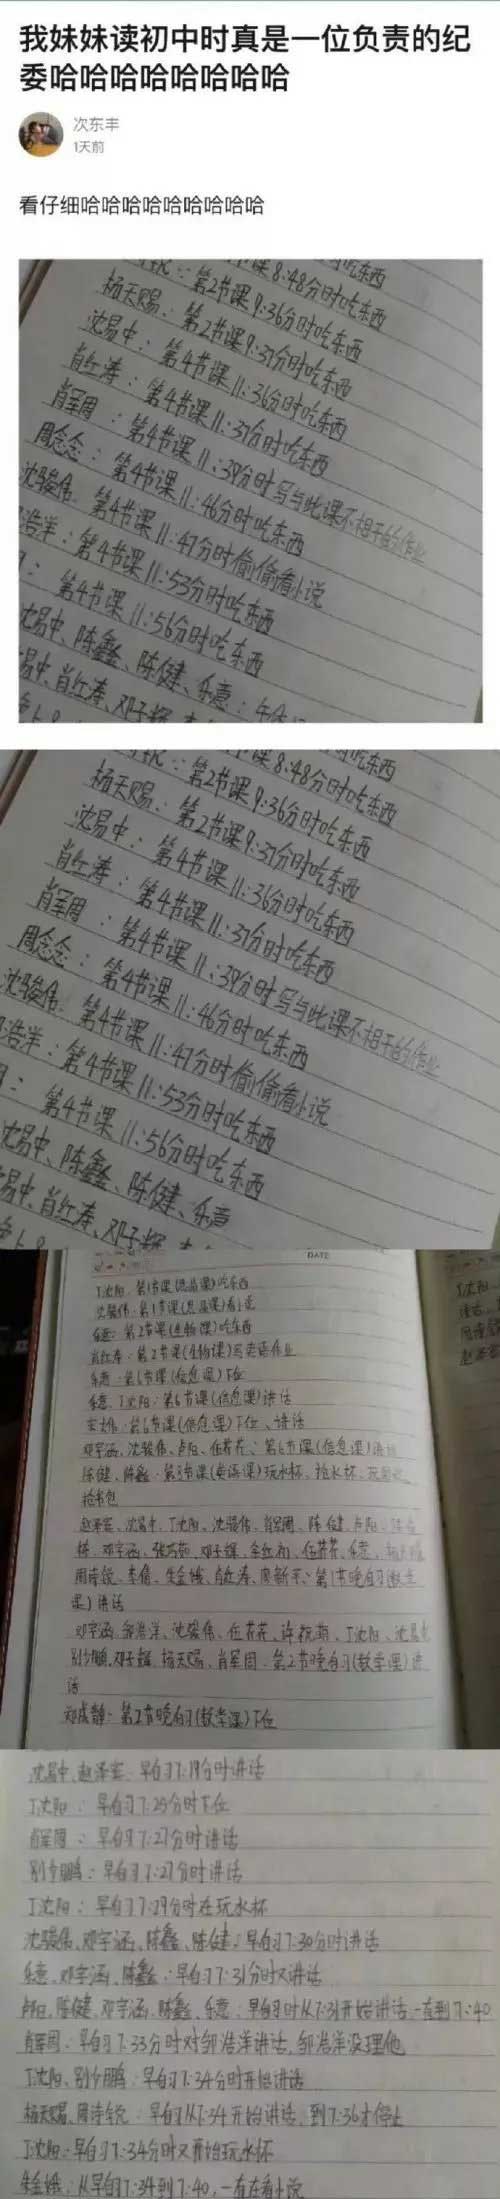 我妹妹读初中时真是一位负责的纪
委哈哈哈哈哈哈哈哈
次东丰
1天前
看仔细哈哈哈哈哈哈哈哈哈
锐：第2节课8:48分时吃东西
杨天赐：第2节课9:36分时吃东西
沈易中：第2节课9:37分时吃东西
肖红涛：第4节课11:36分时吃东西
肖军周：第4节课11:37分时吃东西
周念念：第4节课11:39分时写与此课不相干的作业
沈骏伟：第4节课11:46分时吃东西
浩洋：第4节课11:47分时偷偷看小说
：第4节课11:53分时吃东西
第4节课11:56分时吃东西
沈易中、陈鑫、陈健、乐意：午
易中、肖红涛、邓子辉、
锐：第2节课8:48分时吃东西
杨天赐：第2节课9:36分时吃东西
沈易中：第2节课9:37分时吃东西
肖红涛：第4节课11:36分时吃东西
肖军周：第4节课11:37分时吃东西
周念念：第4节课11:39分时写与此课不相干的作业
沈骏伟：第4节课11:46分时吃东西
浩洋：第4节课11:47分时偷偷看小说
：第4节课11:53分时吃东西
第4节课11:56分时吃东西
沈易中、陈鑫、陈健、乐意
易中、肖红涛、邓子辉、
DATE
丁沈阳：第1节课(思品课)吃东西
沈骏伟：第1节课(思品课)看小说
乐意：第2节课(生物课)吃东西
肖红涛：第2节课(生物课)写英语作业
乐意：第6节课(信息课)下位
乐意、丁沈阳：第6节课(信息课)讲话
伟：第6节课(信息课)下位、讲话
邓宇涵、沈骏伟、卢阳、伍芹芹：第6节课(信息课)讲话
陈健、陈鑫：第3节课(英语课)玩水杯、抢水杯、
抢书包
赵泽宏、沈易中、丁沈阳、沈骏伟、肖军周、陈健、卢阳、
邓宇涵、邓子辉、伍芹芹、乐意、
周诗锐、李倩、朱金娥、肖红涛、：第1节晚自习(数学
课)讲话
邓宇涵、邹浩洋、沈骏伟、伍芹芹、许、丁沈阳、沈易中
别少鹏、邓子辉、杨天赐、肖军周：第2节晚自习(数学课)讲
话
静：第2节晚自习(数学课)下位
丁沈阳、
沈易中、赵泽宏：早自习7:19分时讲话
丁沈阳：早自习7:25分时下位
肖军周：早自习7:27分时讲话
别少鹏：早自习7:27分时讲话
丁沈阳：早自习7:29分时在玩水杯
沈骏伟、邓宇涵、陈鑫、陈健：早自习7:30分时讲话
乐意、邓宇涵、陈鑫：早自习7:31分时又讲话
卢阳、陈健、邓宇涵、陈鑫、乐意：早自习时从7:31开始讲话，一直到7:40
肖军周：早自习7:33分时对邹浩洋讲话，邹浩洋没理他
丁沈阳、别少鹏：早自习7:34分时开始讲话
杨天赐、周诗锐：早自习从7:34开始讲话，到7:36才停止
丁沈阳：早自习7:34分时又开始玩水杯
朱金娥：从早自习7:34到7:40，一直在看小说